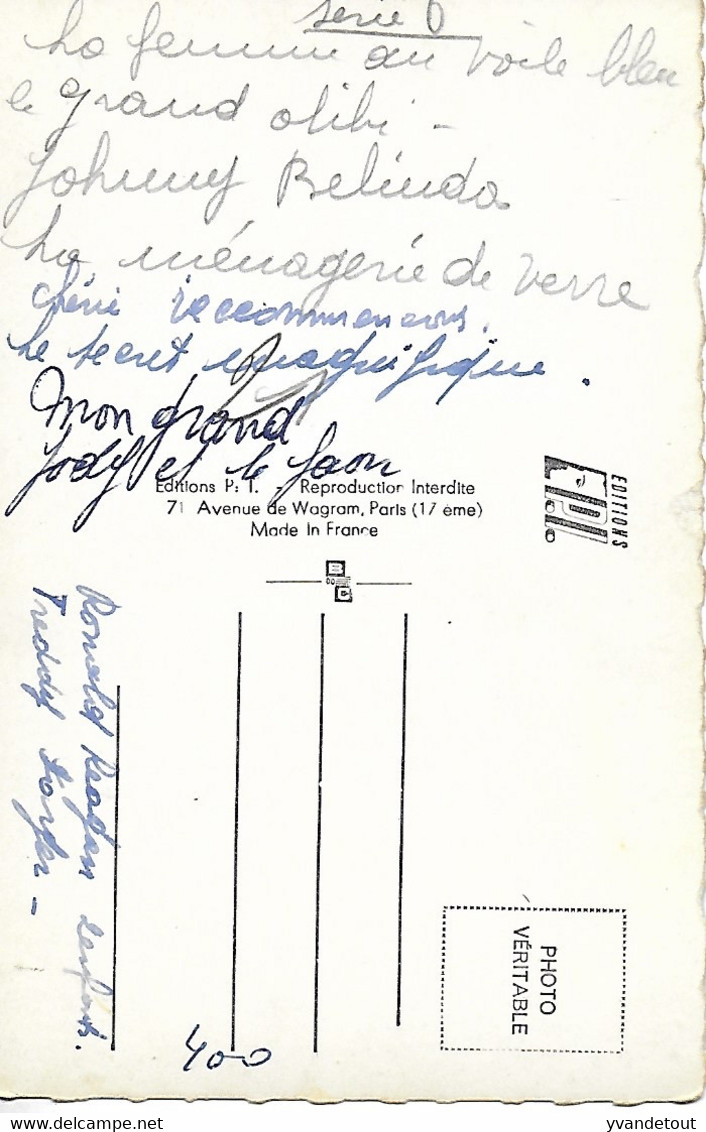 Serie D
La femme au voile bleu
le grand alibi -
Johnny Belinda
La ménagerie de verre
chérie recommençons.
Le secret magnifique.
Mon grand
Jody et le faon
Editions P. I. - Reproduction Interdite
71 Avenue de Wagram, Paris (17 ème)
Made In France
EDITIONS
P.I.
Ronald Reagan 2 enfants.
Freddy
400
PHOTO
VÉRITABLE
yvandetout